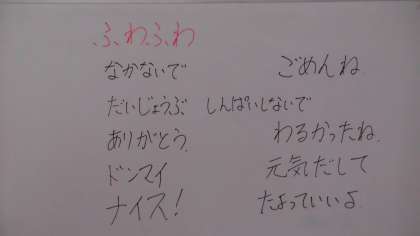 ふわふわ
なかないで
ごめんね。
だいじょうぶ しんぱいしないで
ありがとう。
わるかったね。
ドンマイ
元気だして
ナイス!
たよっていいよ